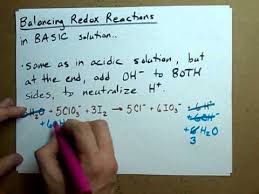 Balancing Redox Reactions
in BASIC solution..
• Same as in acidic solution, but
at the end, add OH⁻ to BOTH
sides, to neutralize H⁺.
H₂O + 5ClO₃⁻ + 3I₂ → 5Cl⁻ + 6IO₃⁻ + 6H⁺
+ 6OH⁻
+ 6 H₂O
3